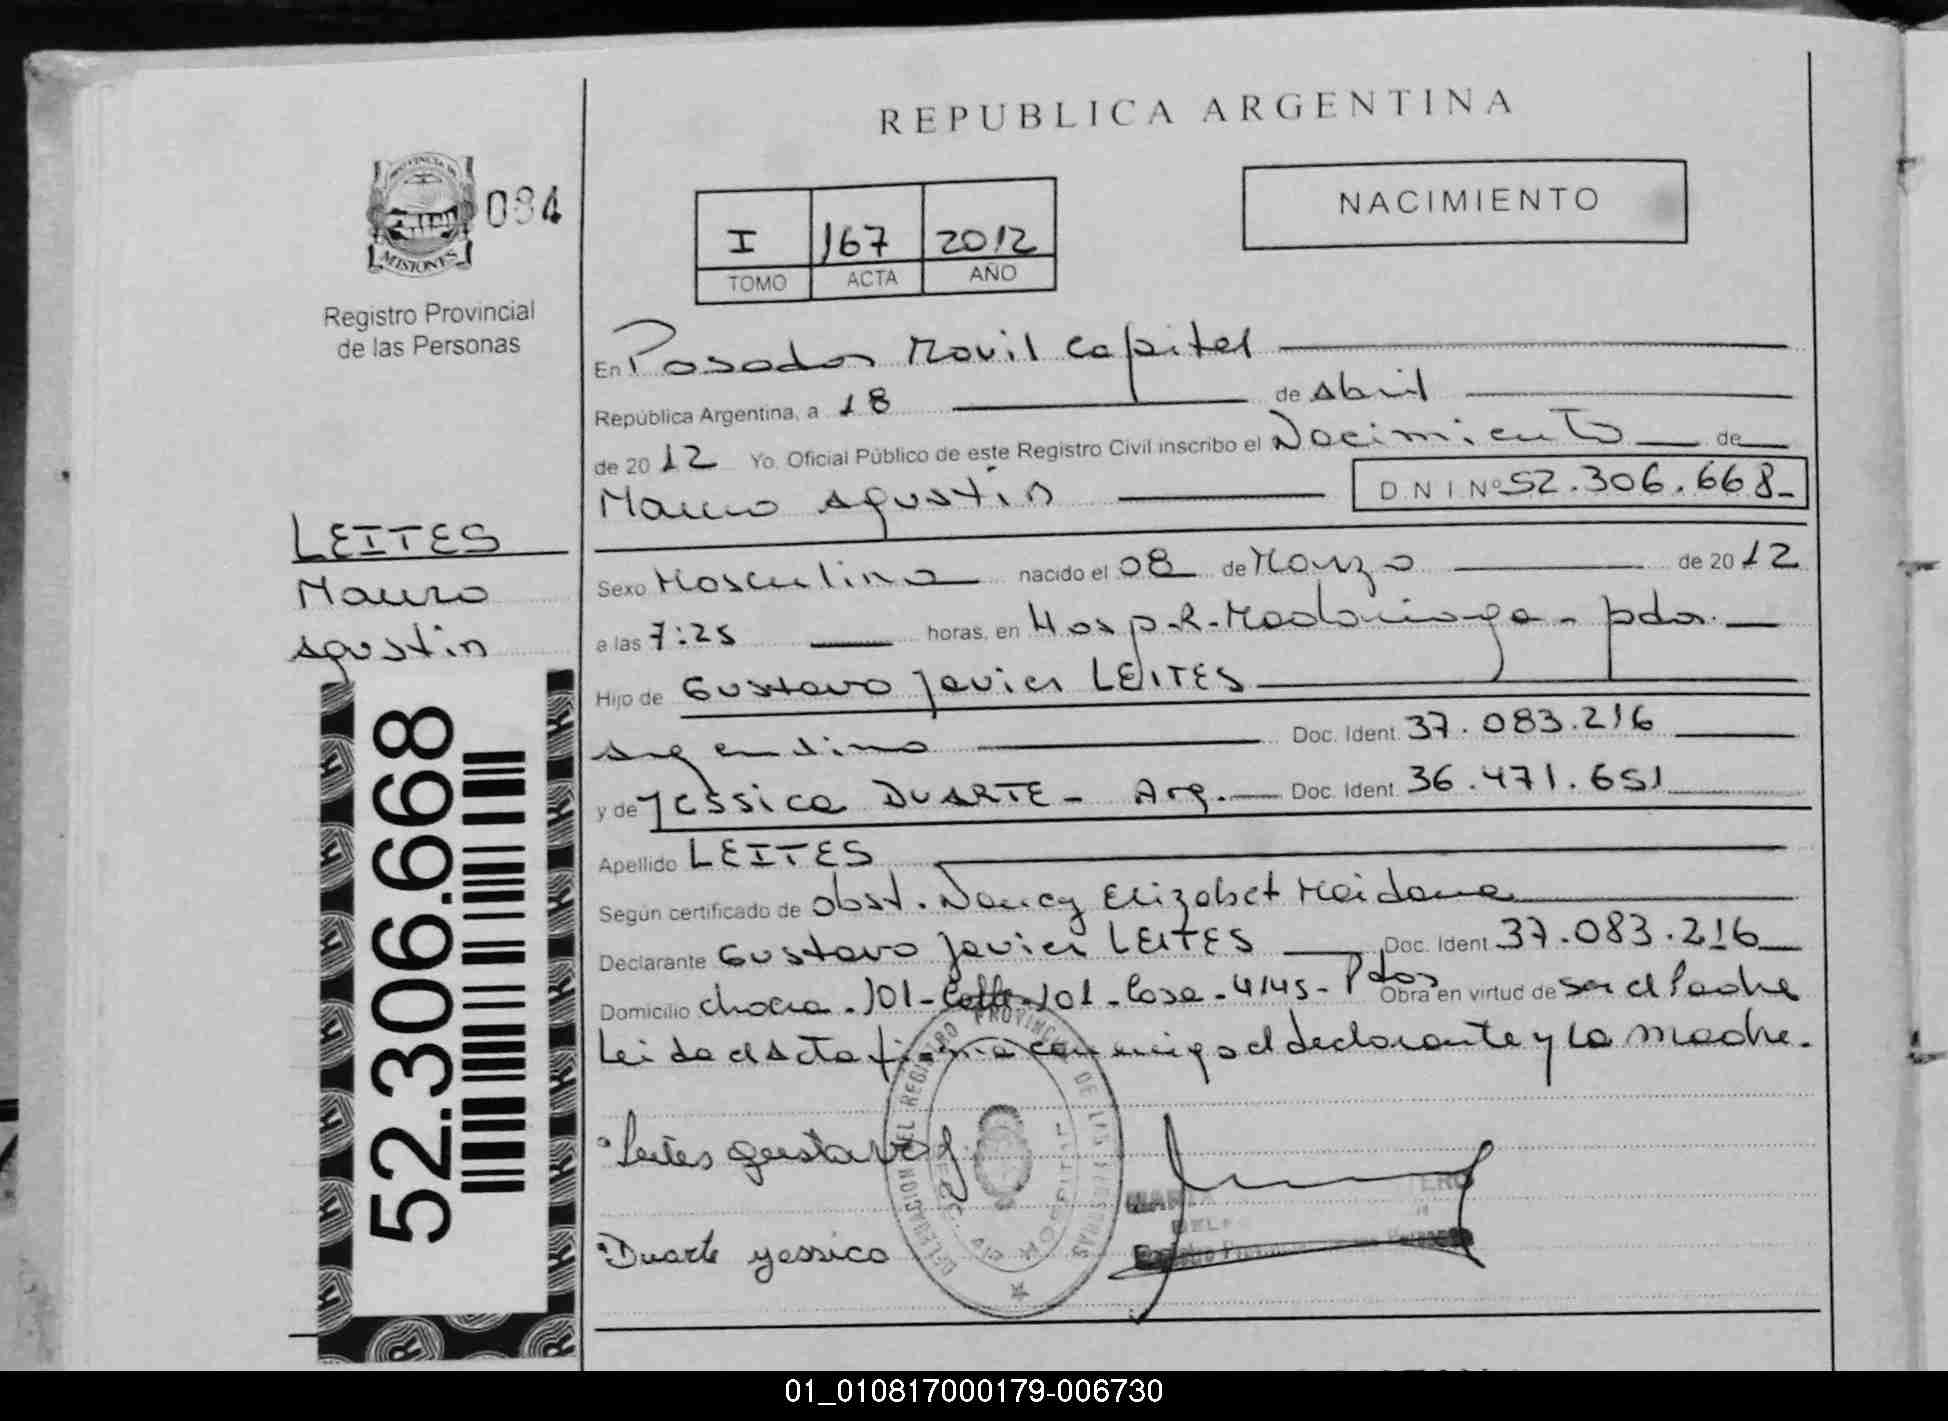 REPUBLICA ARGENTINA
PROVINCIA DE
MISIONES
084
Registro Provincial
de las Personas
I 167 2012
TOMO ACTA AÑO
NACIMIENTO
En Posadas Movil Capital
República Argentina, a 18 de Abril
de 2012 Yo. Oficial Público de este Registro Civil inscribo el Nacimiento de
Mauro Agustin DNI Nº 52.306.668-
LEITES
Mauro
Agustin
Sexo Masculino nacido el 08 de Marzo de 2012
a las 7:25 horas, en Hosp. R. Madariaga - pdas.
Hijo de Gustavo Javier LEITES
Argentino Doc. Ident. 37.083.216
y de Yessica DUARTE - Arg. Doc. Ident. 36.471.651
Apellido LEITES
Según certificado de Obst. Nancy Elizabet Meidana
Declarante Gustavo Javier LEITES Doc. Ident 37.083.216
Domicilio chacra - 101 - Calle - 101 - Casa - 4145 - Pdas Obra en virtud de ser el Padre
Leida el Acta firma conmigo el declarante y la madre.
52.306.668
Leites gustavo J.
Duarte yessica
DELEGACION DEL REGISTRO PROVINCIAL DE LAS PERSONAS
HOSPITAL
MARIA
Registro
01_010817000179-006730